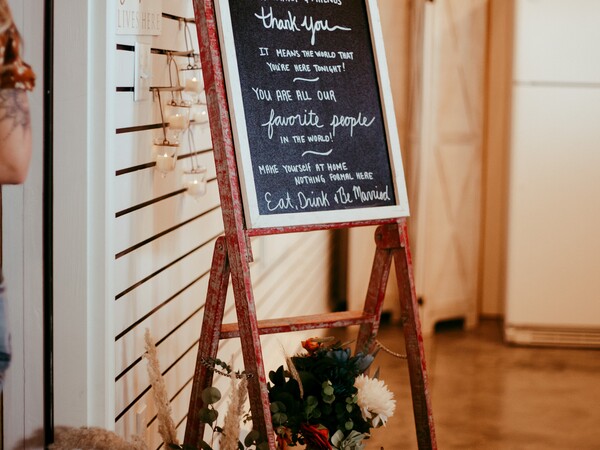 LIVES HERE
thank you
IT MEANS THE WORLD THAT
YOU'RE HERE TONIGHT!
YOU ARE ALL OUR
favorite people
IN THE WORLD!
MAKE YOURSELF AT HOME
NOTHING FORMAL HERE
Eat, Drink & Be Married